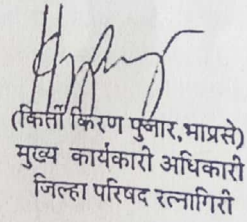 (किर्ती किरण पुजार,भाप्रसे)
मुख्य कार्यकारी अधिकारी
जिल्हा परिषद रत्नागिरी